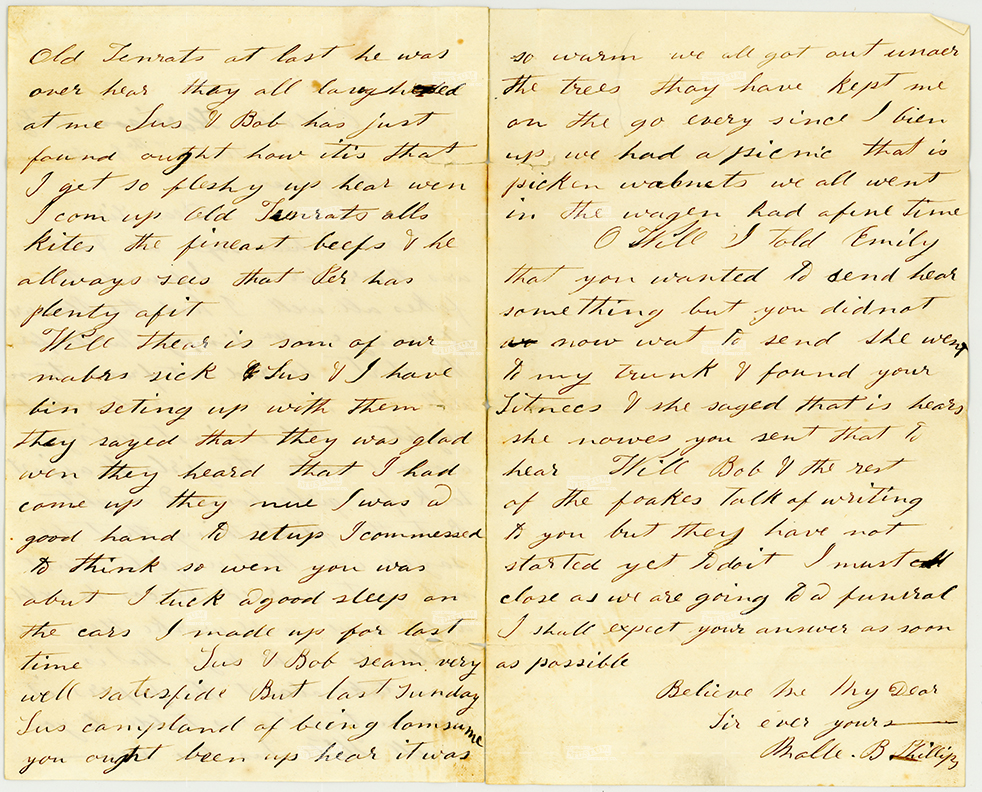 Old Tenrats at last he was
over hear they all laughed
at me Sus & Bob has just
found ought how itis that
I get so fleshy up hear wen
I com up Old Tenrats alls
kites the fineast beefs & he
allways sees that Ser has
plenty afit
Will thear is som of our
nabrs sick & Sus & I have
bin seting up with them
they sayed that they was glad
wen they heard that I had
come up they nue I was a
good hand to setup I commessed
to think so wen you was
abut I tuck a good sleep on
the cars I made up for last
time Sus & Bob seam very
well satesfide But last Sunday
Sus campland of being lomsume
you ought been up hear it was
so warm we all got out under
the trees thay have kept me
on the go every since I bien
up we had a picnic that is
picken walnets we all went
in the wagen had afine time
O Will I told Emily
that you wanted to send hear
something but you didnot
now wat to send she went
to my trunk & found your
& she sayed that is hears
she nowes you sent that to
hear Will Bob & the rest
of the foakes talk of writing
to you but they have not
started yet to doit I must
close as we are going to a funeral
I shall expect your answer as soon
as possible
Believe me My Dear
Sir ever yours
B Phillips